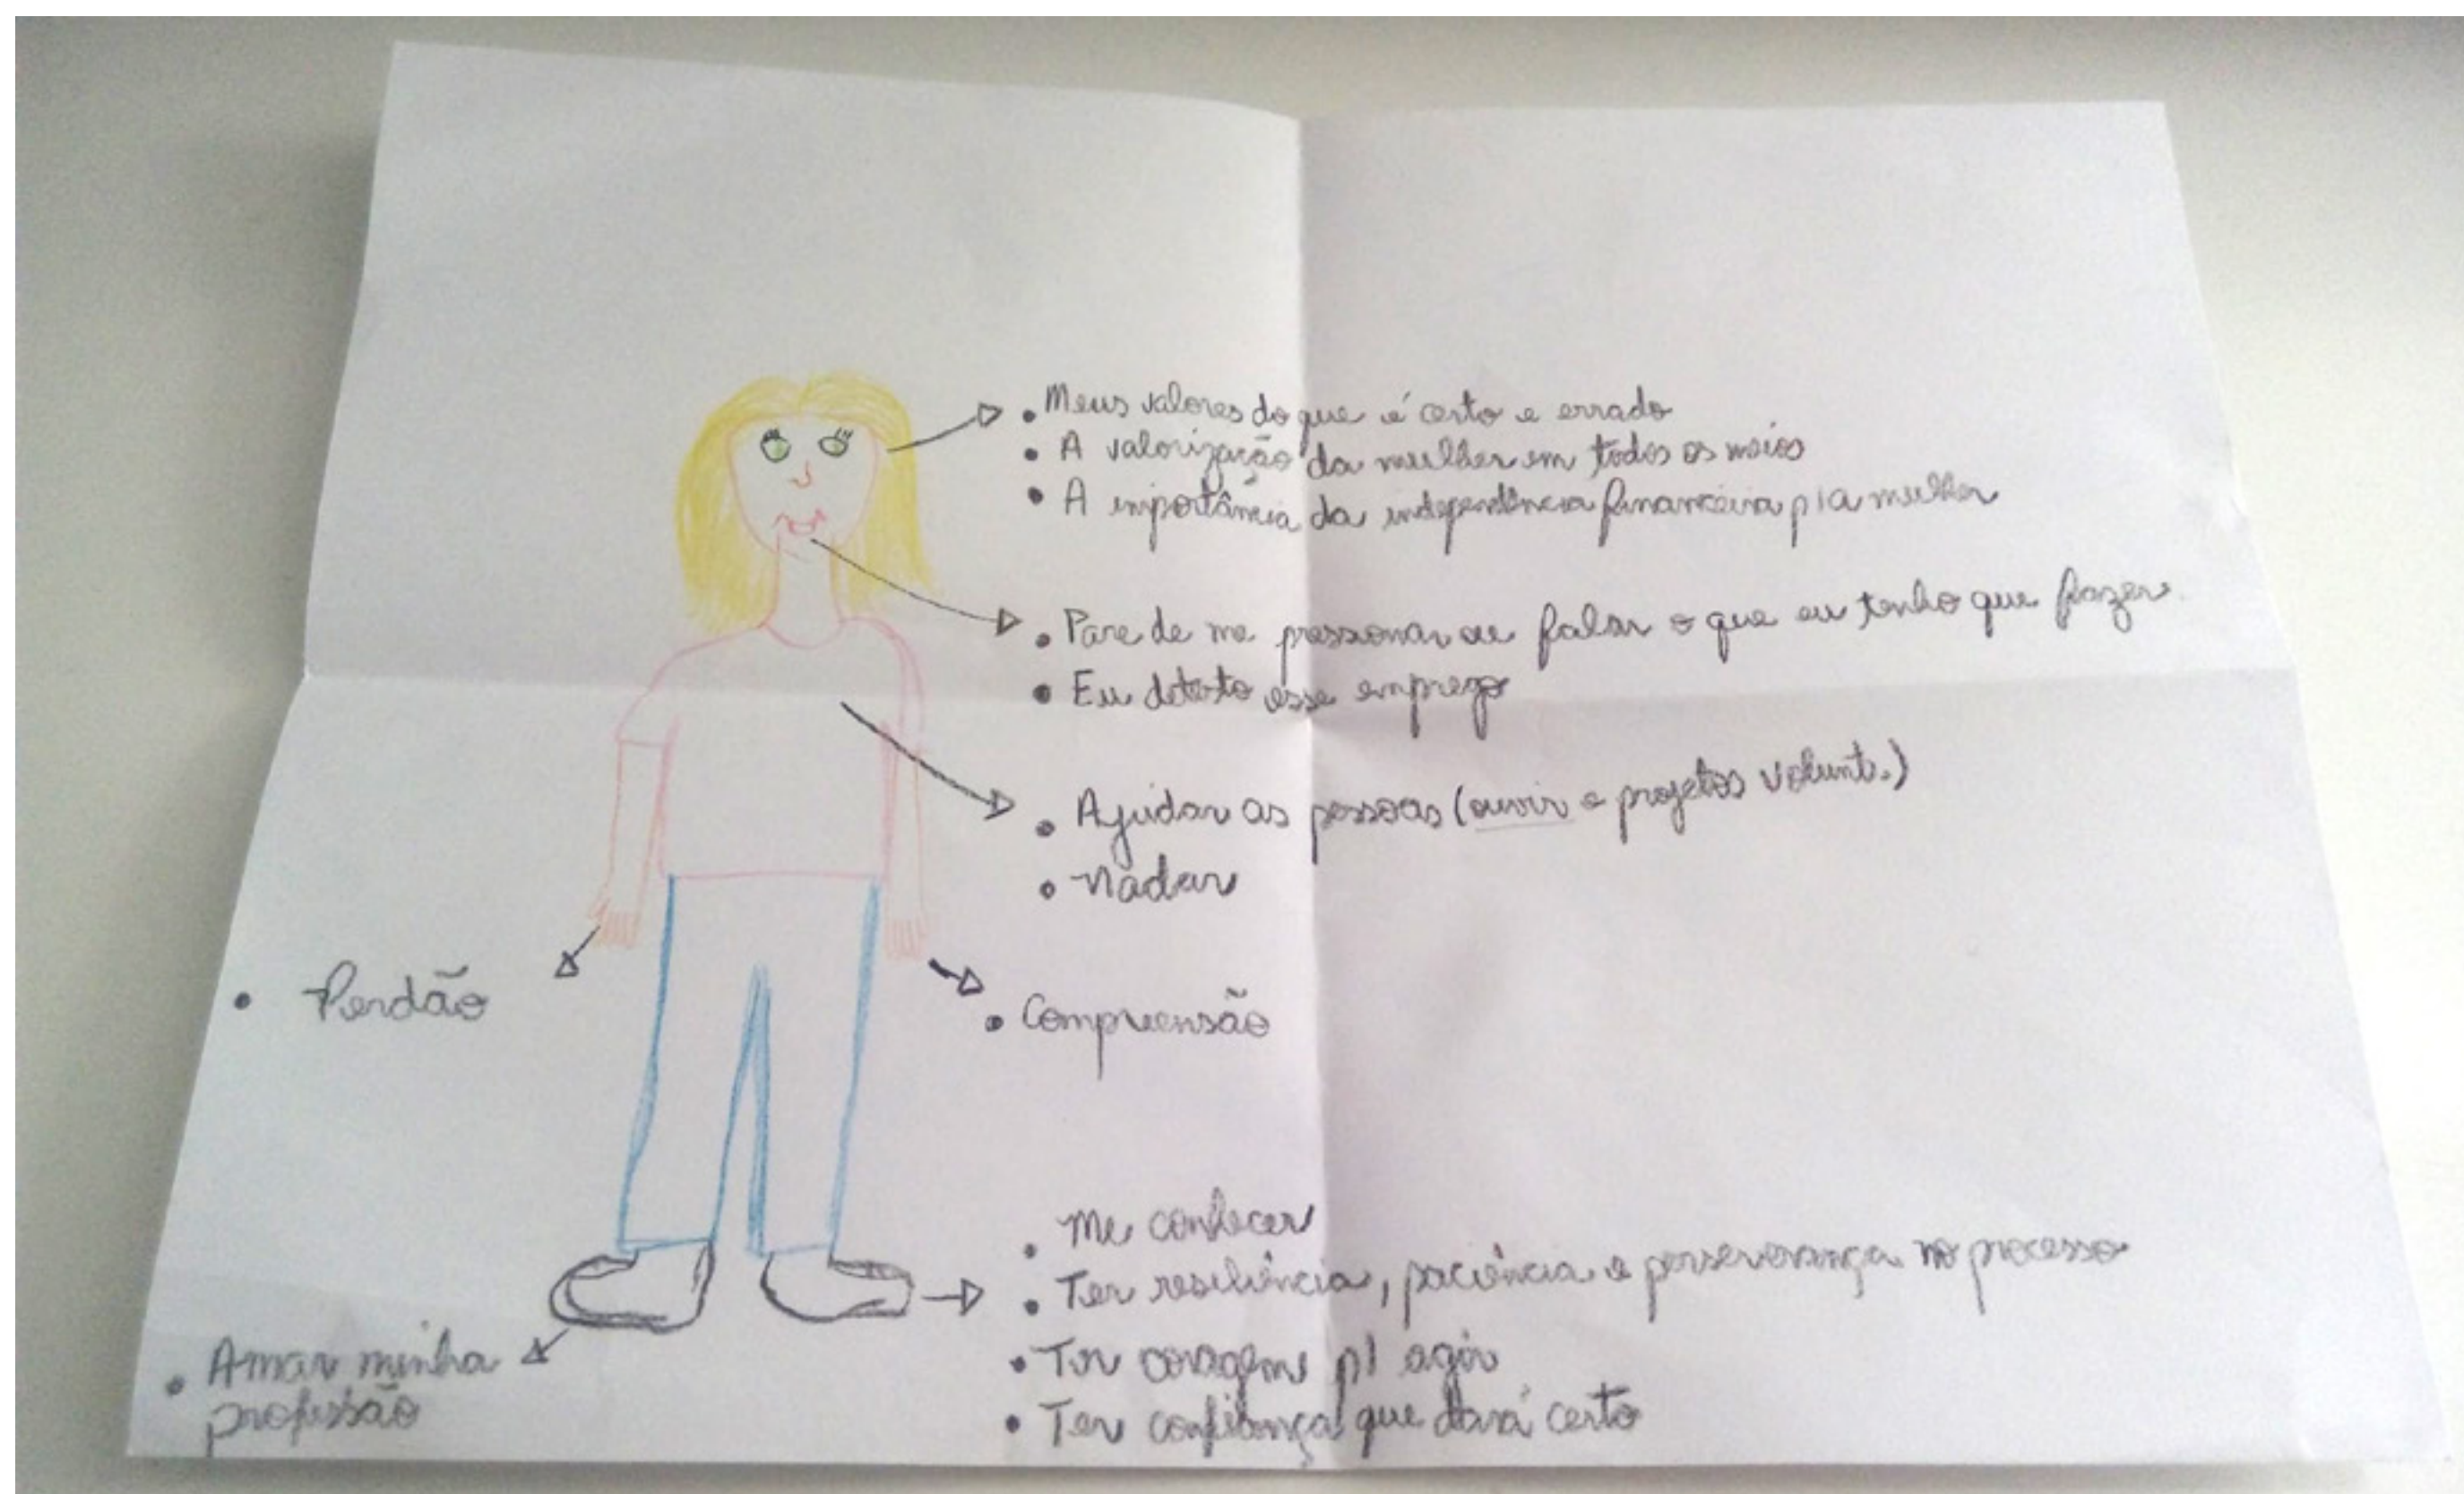 • Meus valores do que é certo e errado
• A valorização da mulher em todos os meios
• A importância da independência financeira p/ a mulher
• Pare de me pressionar ou falar o que eu tenho que fazer.
• Eu detesto esse emprego
• Ajudar as pessoas (ouvir e projetos volunt.)
• Nadar
• Perdão
• Compreensão
• Me conhecer
• Ter resiliência, paciência e perseverança no processo
• Ter coragem p/ agir
• Ter confiança que dará certo
• Amar minha
profissão